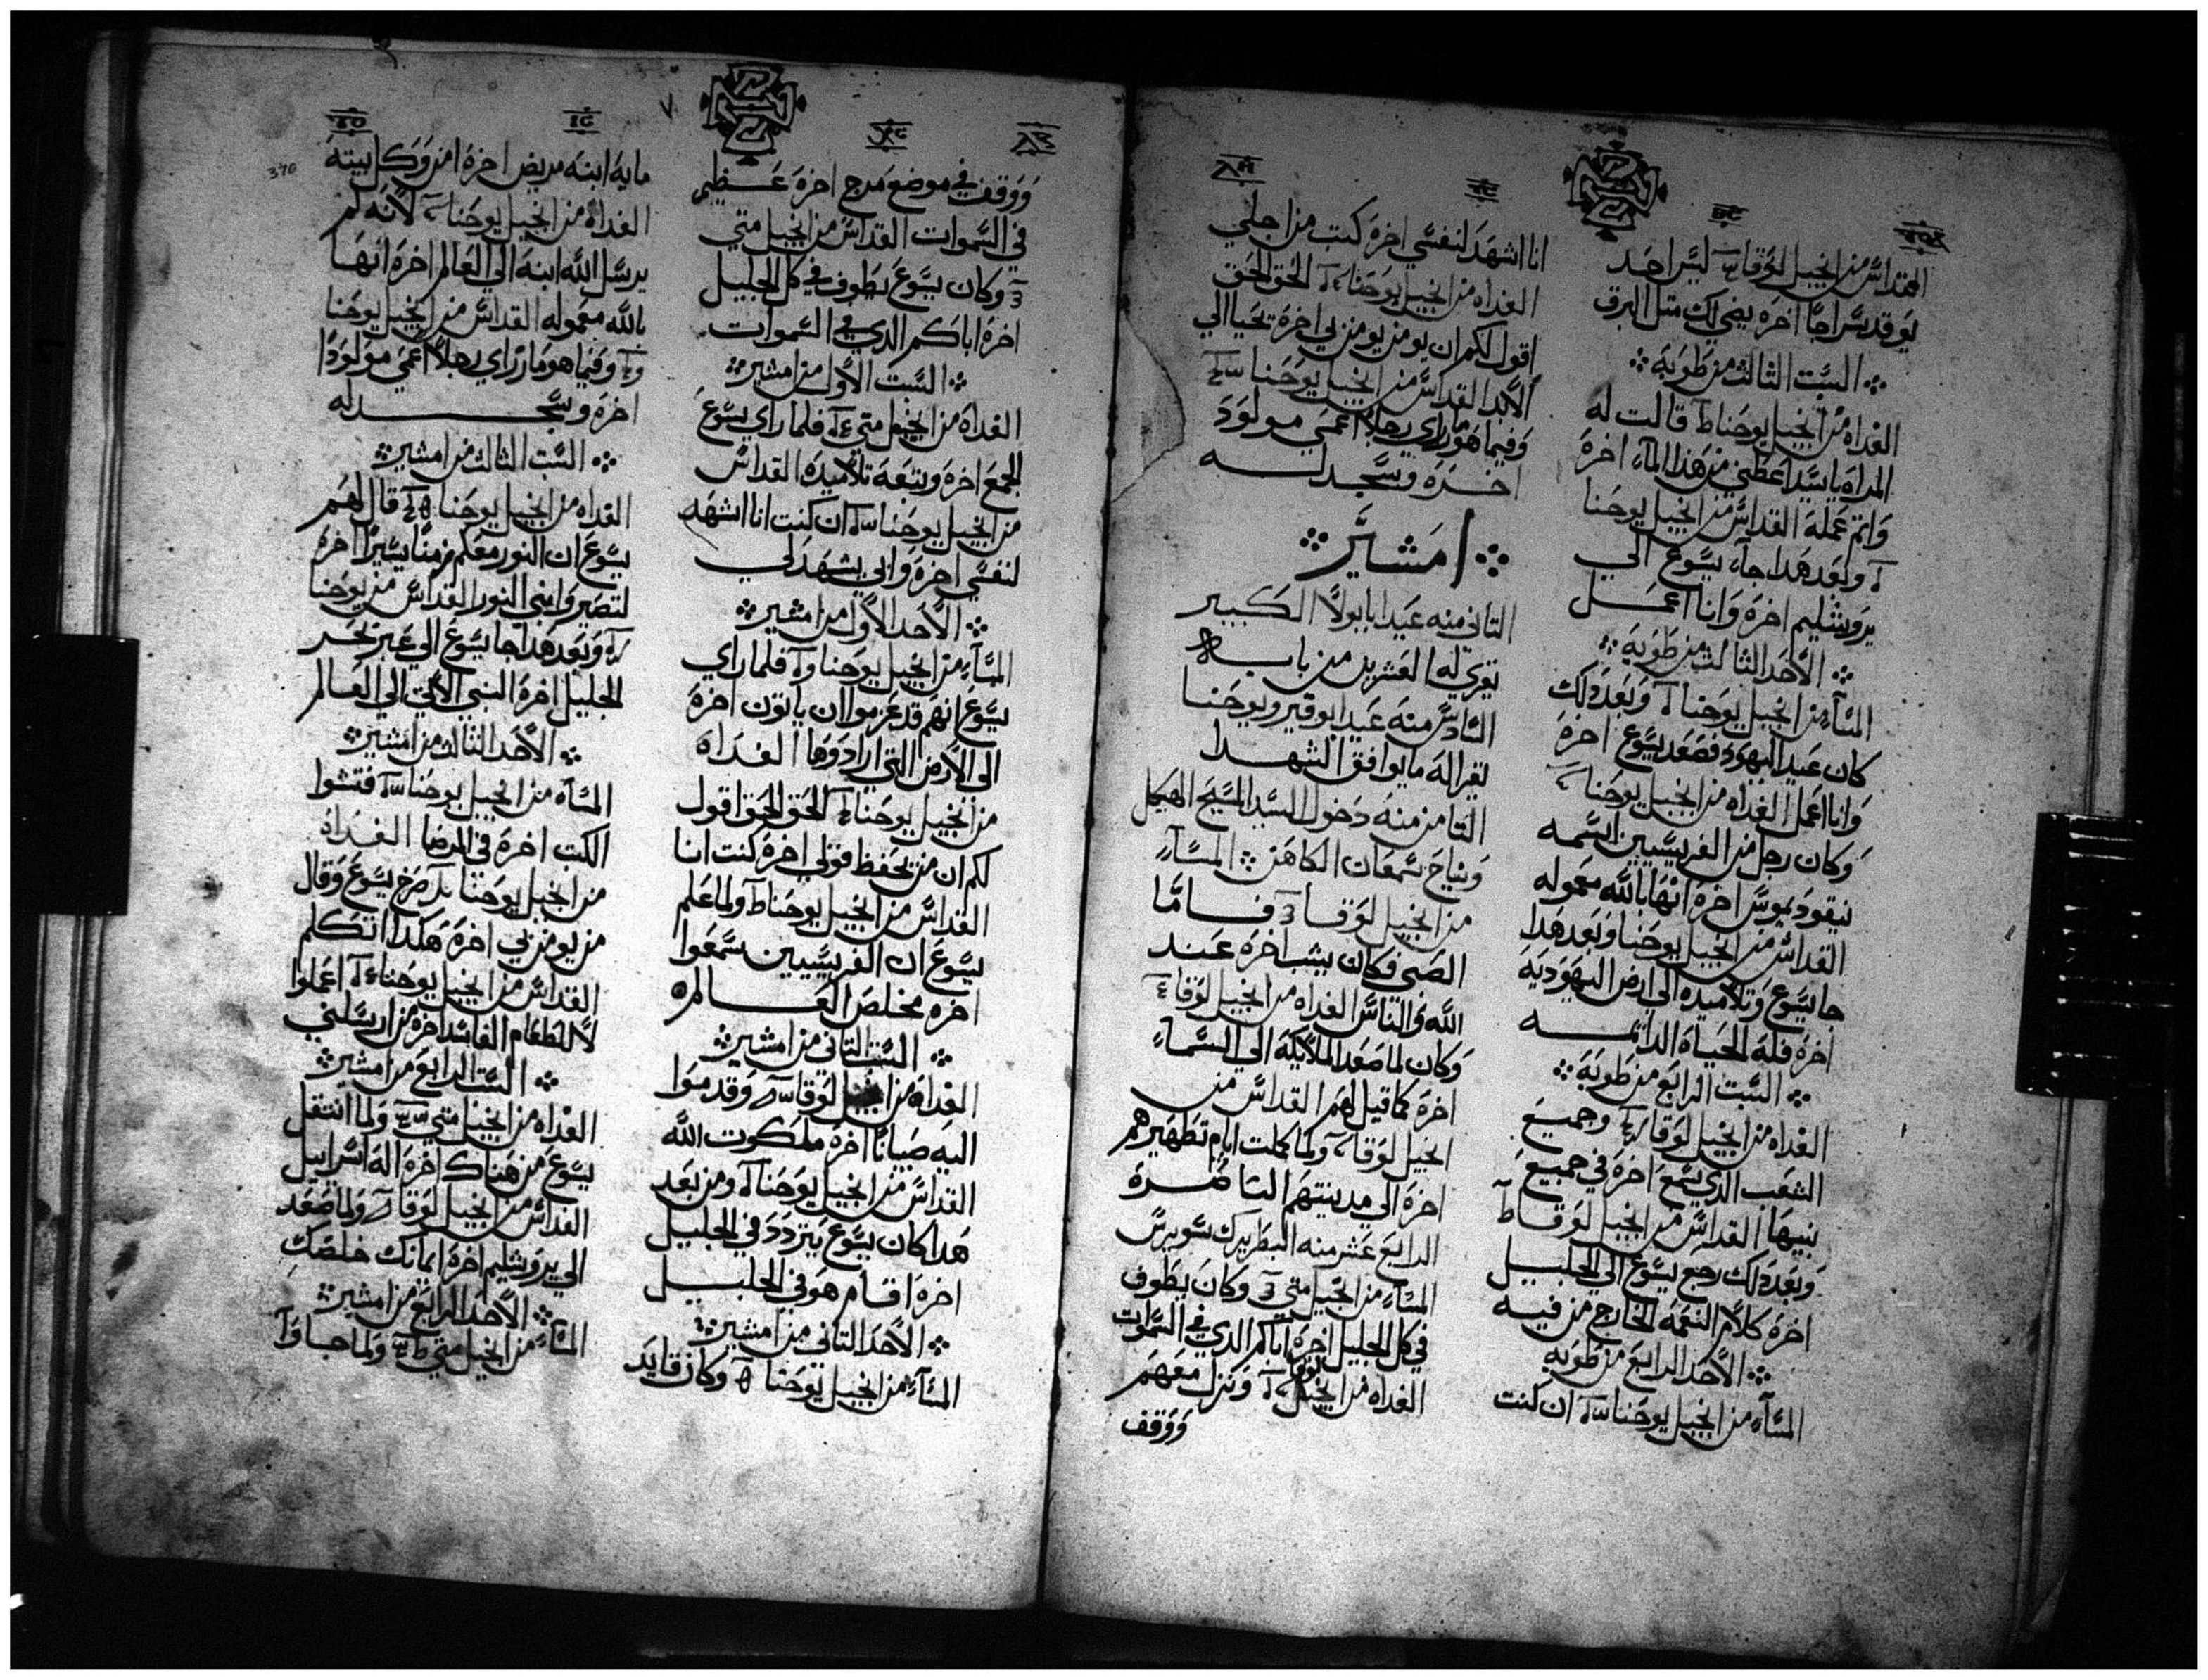 القداس من انجيل لوقا ليس احد
يوقد سراجا اخره يضي لك مثل البرق
السبت الثالث من طوبه
الغداه من انجيل يوحنا قالت له
المراه يا سيد اعطني من هذا الماء اخرة
واتم عمله القداس من انجيل يوحنا
وبعد هدا جاء يسوع الي
يروشليم اخرة وانا اعمل
الاحد الثالث من طوبه
المساء من انجيل يوحنا وبعد دلك
كان عيد اليهود فصعد يسوع اخرة
وانا اعمل الغداه من انجيل يوحنا
وكان رجل من الفريسيين اسمه
نيقوديموس اخرة انها بالله معموله
القداس من انجيل يوحنا وبعد هدا
جا يسوع وتلاميده الي ارض اليهوديه
اخرة فله الحياة الدايمه
السبت الرابع من طوبة
الغداه من انجيل لوقا وجميع
الشعب الدي سمع اخرة في جميع
بنيها القداس من انجيل لوقا
وبعد دلك رجع يسوع الي الجليل
اخرة كلام النعمه الخارج من فيه
الاحد الرابع من طوبه
المساء من انجيل يوحنا ان كنت
انا اشهد لنفسي اخرة كتب من اجلي
الغداه من انجيل يوحنا الحق الحق
اقول لكم ان يومن بي اخرة تحيا الي
الابد القداس من انجيل يوحنا
وفيما هو مار راي رجلا اعمي مولود
اخرة وسجد له
امشير
التاني منه عيد ابا بولا الكبير
تقري له العشرين من بابه
السادس منه عيد ابوقير ويوحنا
تقرا له ما يوافق الشهدا
التامن منه دخول السيد المسيح الهيكل
ونياح سمعان الكاهن المساء
من انجيل لوقا فاما
الصبي فكان يشب اخرة عند
الله والناس الغداه من انجيل لوقا
وكان لما صعد الملايكه الي السماء
اخرة كما قيل لهم القداس من
انجيل لوقا ولما كملت ايام تطهيرهم
اخرة الي مدينتهم الناصرة
الرابع عشر منه البطريرك سويرس
المساء من انجيل متي وكان يطوف
في كل الجليل اخرة اباكم الدي في السموات
الغداه من انجيل لوقا ونزل معهم
ووقف
ووقف في موضع مرج اخرة عظيم
في السموات القداس من انجيل متي
وكان يسوع يطوف في كل الجليل
اخرة اباكم الدي في السموات
السبت الاول من امشير
الغداة من انجيل متي فلما راي يسوع
الجمع اخرة وتبعه تلاميده القداس
من انجيل يوحنا ان كنت انا اشهد
لنفسي اخرة وابي يشهد لي
الاحد الاول من امشير
المساء من انجيل يوحنا فلما راي
يسوع انهم قد عزموا ان ياتون اخرة
الى الارض التي ارادوها الغداه
من انجيل يوحنا الحق الحق اقول
لكم ان من يحفظ قولي اخرة كنت انا
القداس من انجيل يوحنا ولما علم
يسوع ان الفريسيين سمعوا
اخره مخلص العالم
السبت التاني من امشير
الغداة من انجيل لوقا وقدموا
اليه صبيانا اخرة ملكوت الله
القداس من انجيل يوحنا ومن بعد
هدا كان يسوع يتردد في الجليل
اخرة اقام هو في الجليل
الاحد التاني من امشير
المساء من انجيل يوحنا وكان قايد
مايه ابنه مريض اخرة امن وكل بيته
الغداة من انجيل يوحنا لانه لم
يرسل الله ابنه الي العالم اخرة انها
بالله معموله القداس من انجيل يوحنا
وفيما هو مار راي رجلا اعمي مولودا
اخرة وسجد له
السبت الثالث من امشير
الغداه من انجيل يوحنا قال لهم
يسوع ان النور معكم زمنا يسيرا اخرة
لتصيروا بني النور القداس من يوحنا
وبعد هدا جا يسوع الي عبر بحر
الجليل اخرة النبي الاتي الي العالم
الاحد الثالث من امشير
المساء من انجيل يوحنا فتشوا
الكتب اخرة في المرضا الغداة
من انجيل يوحنا صرخ يسوع وقال
من يومن بي اخرة هكدا اتكلم
القداس من انجيل يوحنا اعملوا
لا للطعام الفاسد اخرة من ارسلني
السبت الرابع من امشير
الغداه من انجيل متي ولما انتقل
يسوع من هناك اخرة اله اسراييل
القداس من انجيل لوقا ولما صعد
الي يروشليم اخرة ايمانك خلصك
الاحد الرابع من امشير
المساء من انجيل متي ولما جاوا